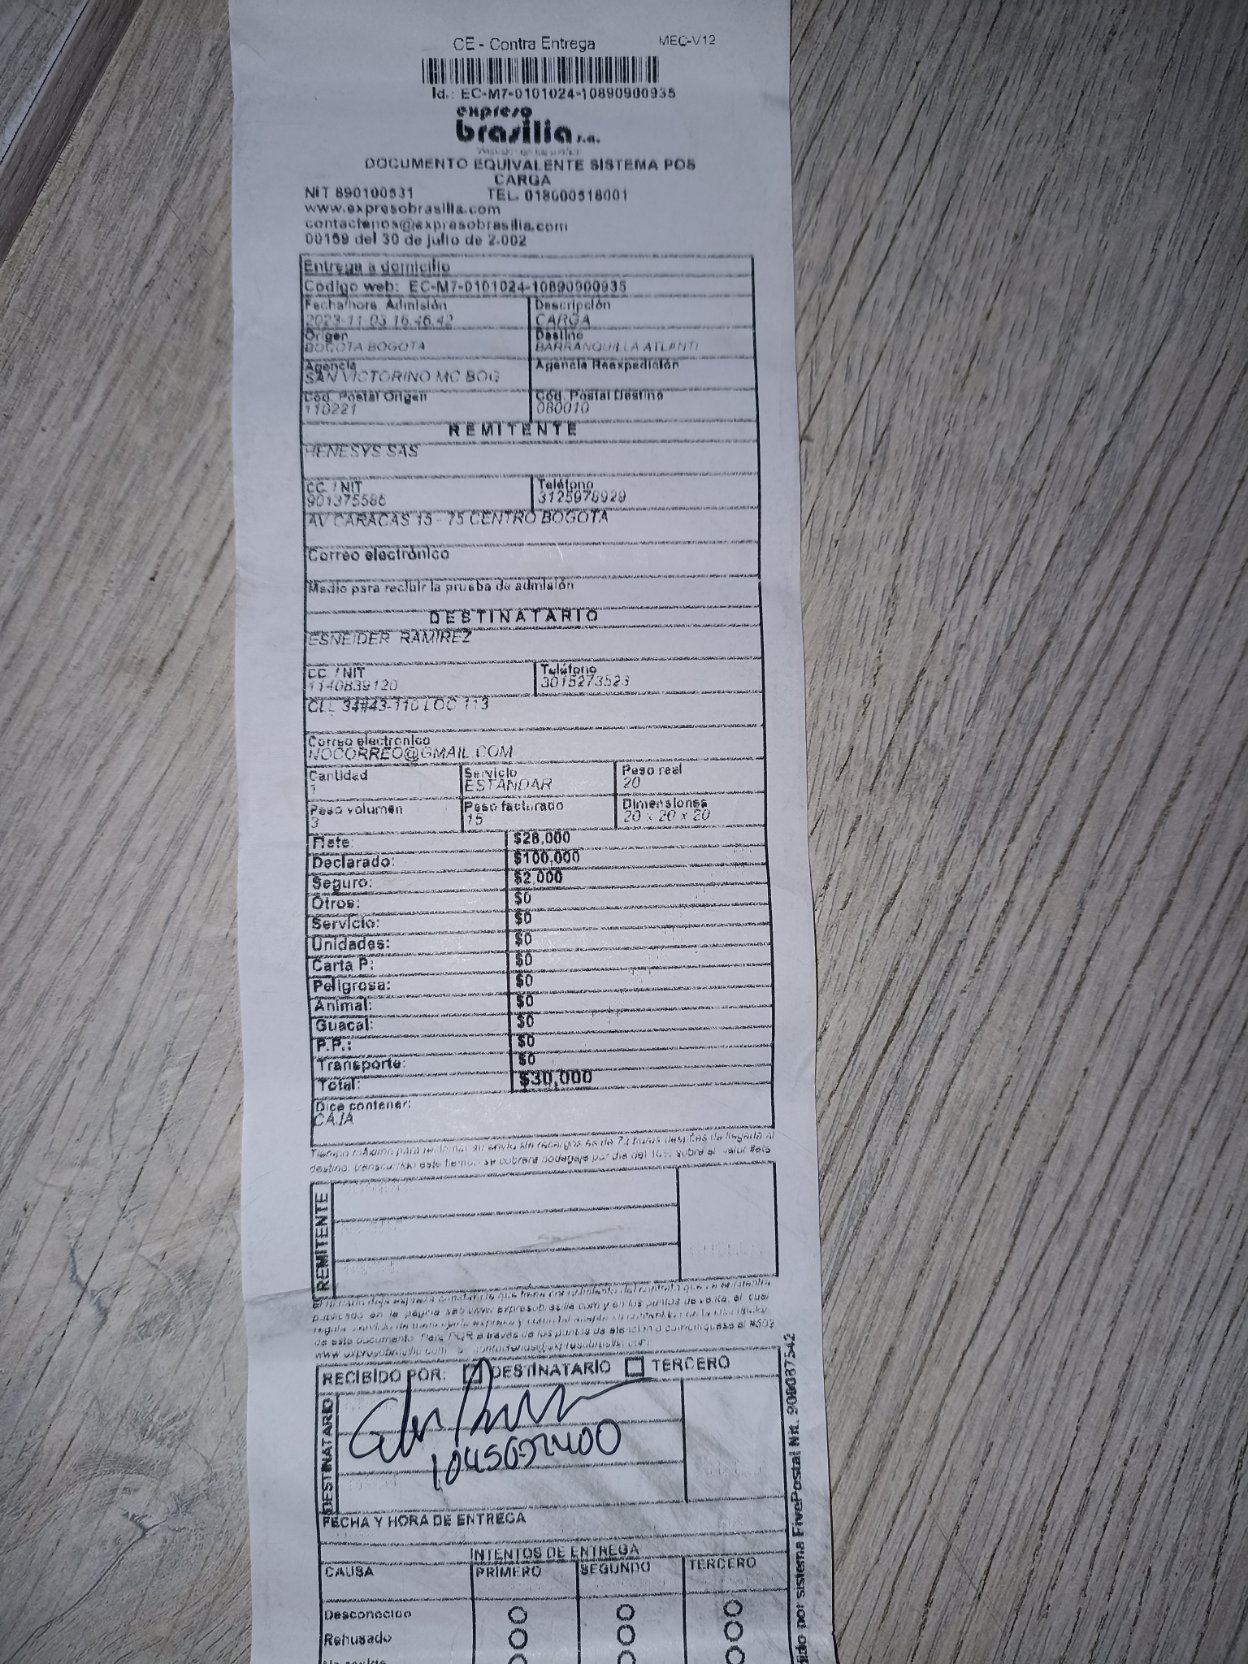 CE - Contra Entrega MEC-V12
Id.: EC-M7-0101024-10890900935
expreso
brasilia s.a.
DOCUMENTO EQUIVALENTE SISTEMA POS
CARGA
NIT 890100531 TEL. 018000518001
www.expresobrasilia.com
contactenos@expresobrasilia.com
00159 del 30 de julio de 2.002
Entrega a domicilio
Codigo web: EC-M7-0101024-10890900935
Fecha/hora Admisión Descripción
2023-11-03 16.46.42 CARGA
Origen Destino
BOGOTA BOGOTA BARRANQUILLA ATLANTI
Agencia Agencia Reexpedición
SAN VICTORINO MC BOG
Cód. Postal Origen Cód. Postal Destino
110221 080010
REMITENTE
HENESYS SAS
CC. / NIT Teléfono
901375586 3125978929
AV CARACAS 15 - 75 CENTRO BOGOTA
Correo electrónico
Medio para recibir la prueba de admisión
DESTINATARIO
ESNEIDER RAMIREZ
CC. / NIT Teléfono
1140839120 3015273523
CLL 34#43-110 LOC 113
Correo electronico
NOCORREO@GMAIL.COM
Cantidad Servicio Peso real
1 ESTANDAR 20
Peso volumen Peso facturado Dimensiones
3 15 20 x 20 x 20
Flete: $28,000
Declarado: $100,000
Seguro: $2,000
Otros: $0
Servicio: $0
Unidades: $0
Carta P: $0
Peligrosa: $0
Animal: $0
Guacal: $0
P.P.: $0
Transporte: $0
Total: $30,000
Dice contener:
CAJA
Tiempo máximo para reclamar su envío sin recargos es de 72 horas después de llegada al
destino, transcurrido este tiempo se cobrará bodegaje por día del 10% sobre el valor flete
REMITENTE
publicado en la página web www.expresobrasilia.com y en los puntos de venta, el cual
de este documento. Para PQR a través de los puntos de atención o comuníquese al #502
RECIBIDO POR: DESTINATARIO TERCERO
DESTINATARIO
FECHA Y HORA DE ENTREGA
INTENTOS DE ENTREGA
CAUSA PRIMERO SEGUNDO TERCERO
Desconocido
Rehusado
sistema FivePostal Nit. 900087542